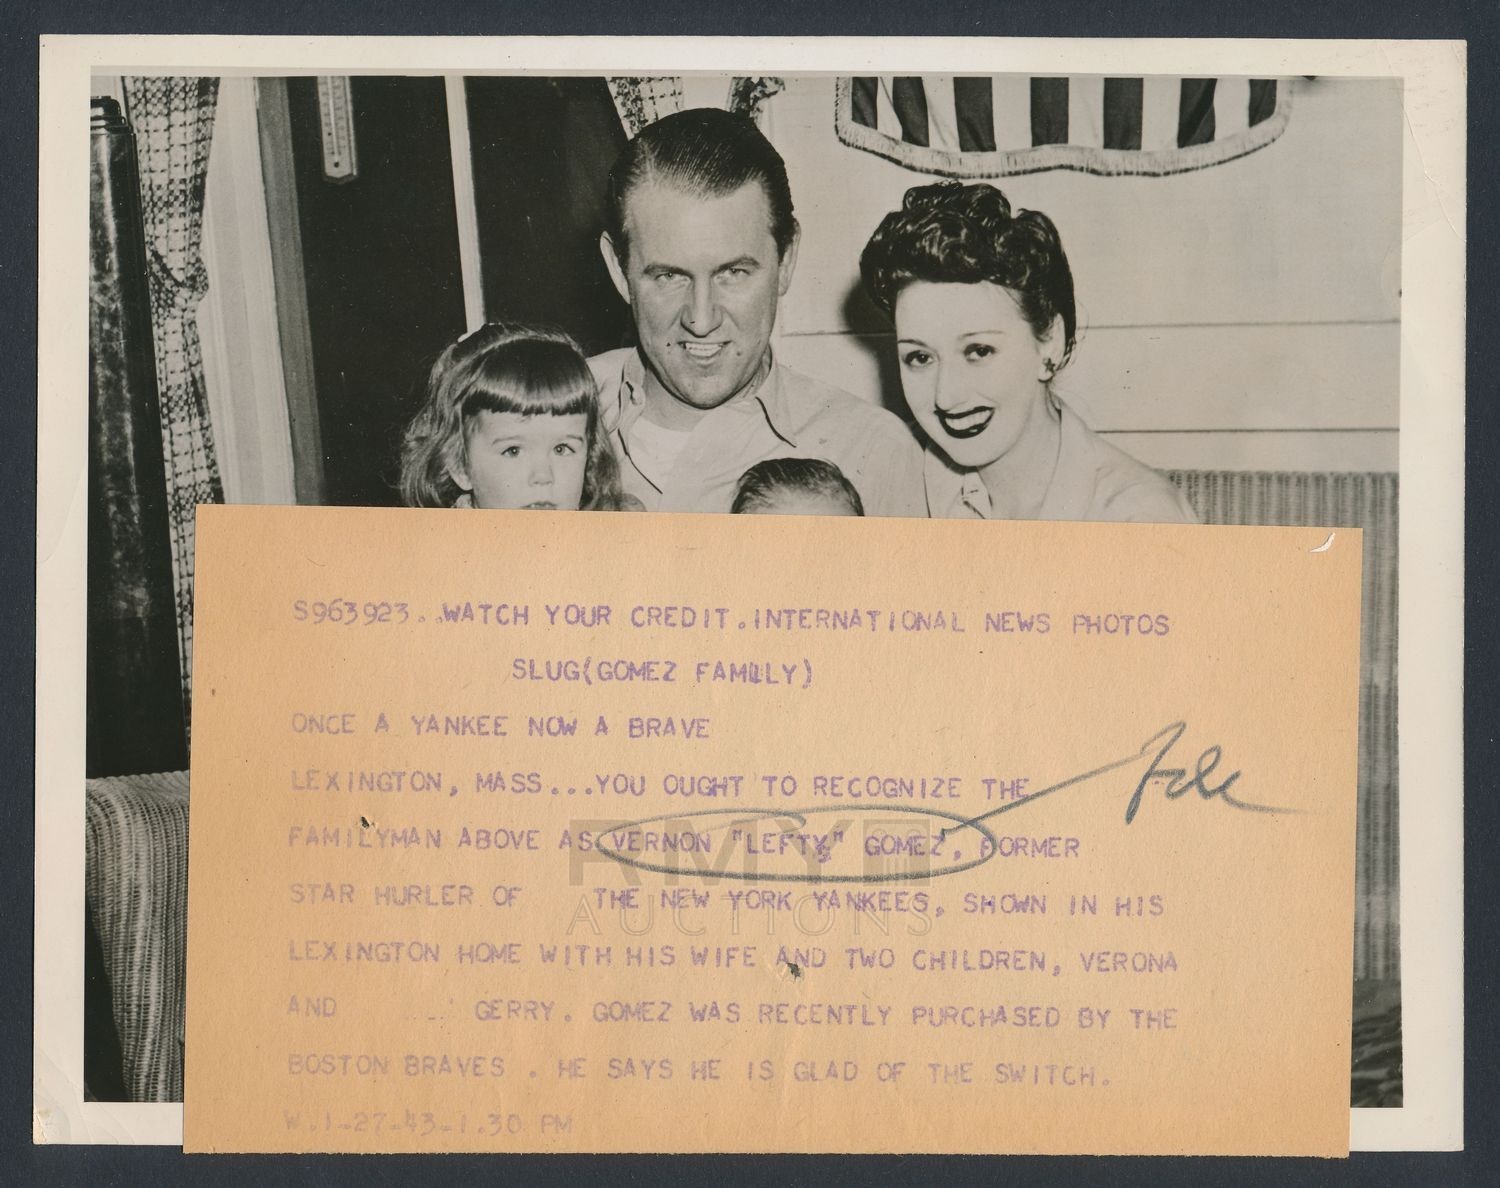 S963923..WATCH YOUR CREDIT.INTERNATIONAL NEWS PHOTOS
SLUG(GOMEZ FAMILY)
ONCE A YANKEE NOW A BRAVE
LEXINGTON, MASS...YOU OUGHT TO RECOGNIZE THE
FAMILYMAN ABOVE AS VERNON "LEFTY" GOMEZ, FORMER
STAR HURLER OF THE NEW YORK YANKEES, SHOWN IN HIS
LEXINGTON HOME WITH HIS WIFE AND TWO CHILDREN, VERONA
AND GERRY. GOMEZ WAS RECENTLY PURCHASED BY THE
BOSTON BRAVES . HE SAYS HE IS GLAD OF THE SWITCH.
W.1-27-43-1.30 PM
RMY
AUCTIONS